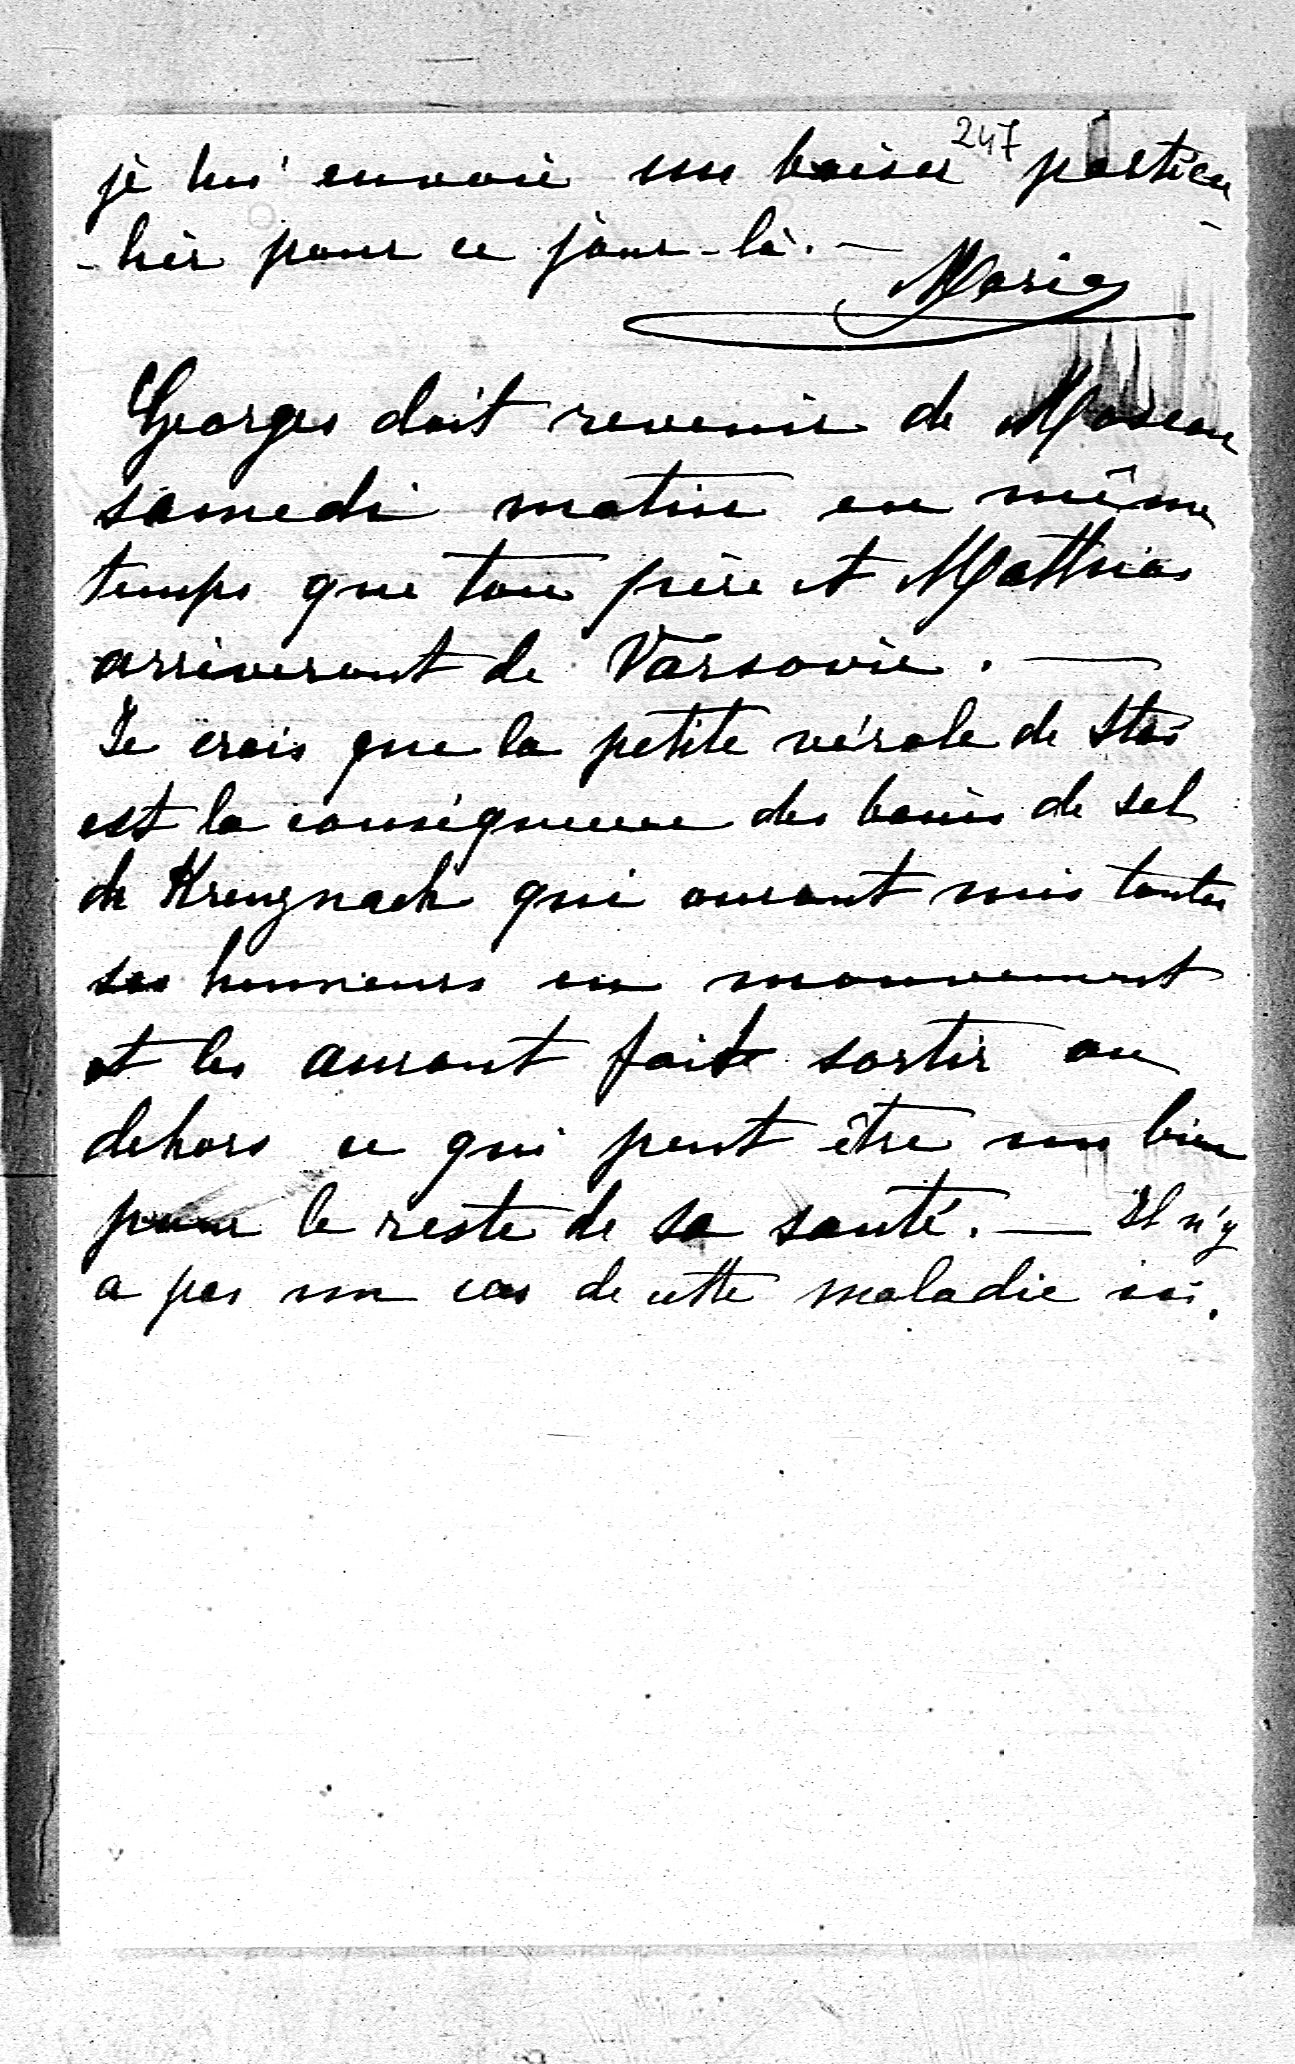 247
je lui envoie un baiser particu
-lier pour ce jour-là. —
Marie
Georges doit revenir de Moscou
samedi matin en même
temps que ton père et Mathias
arriveront de Varsovie. —
Je crois que la petite vérole de Staś
est la conséquence des bains de sel
de Kreuznach qui auront mis toutes
ses humeurs en mouvement
et les auront fait sortir au
dehors ce qui peut être un bien
pour le reste de sa santé. — Il n'y
a pas un cas de cette maladie ici.